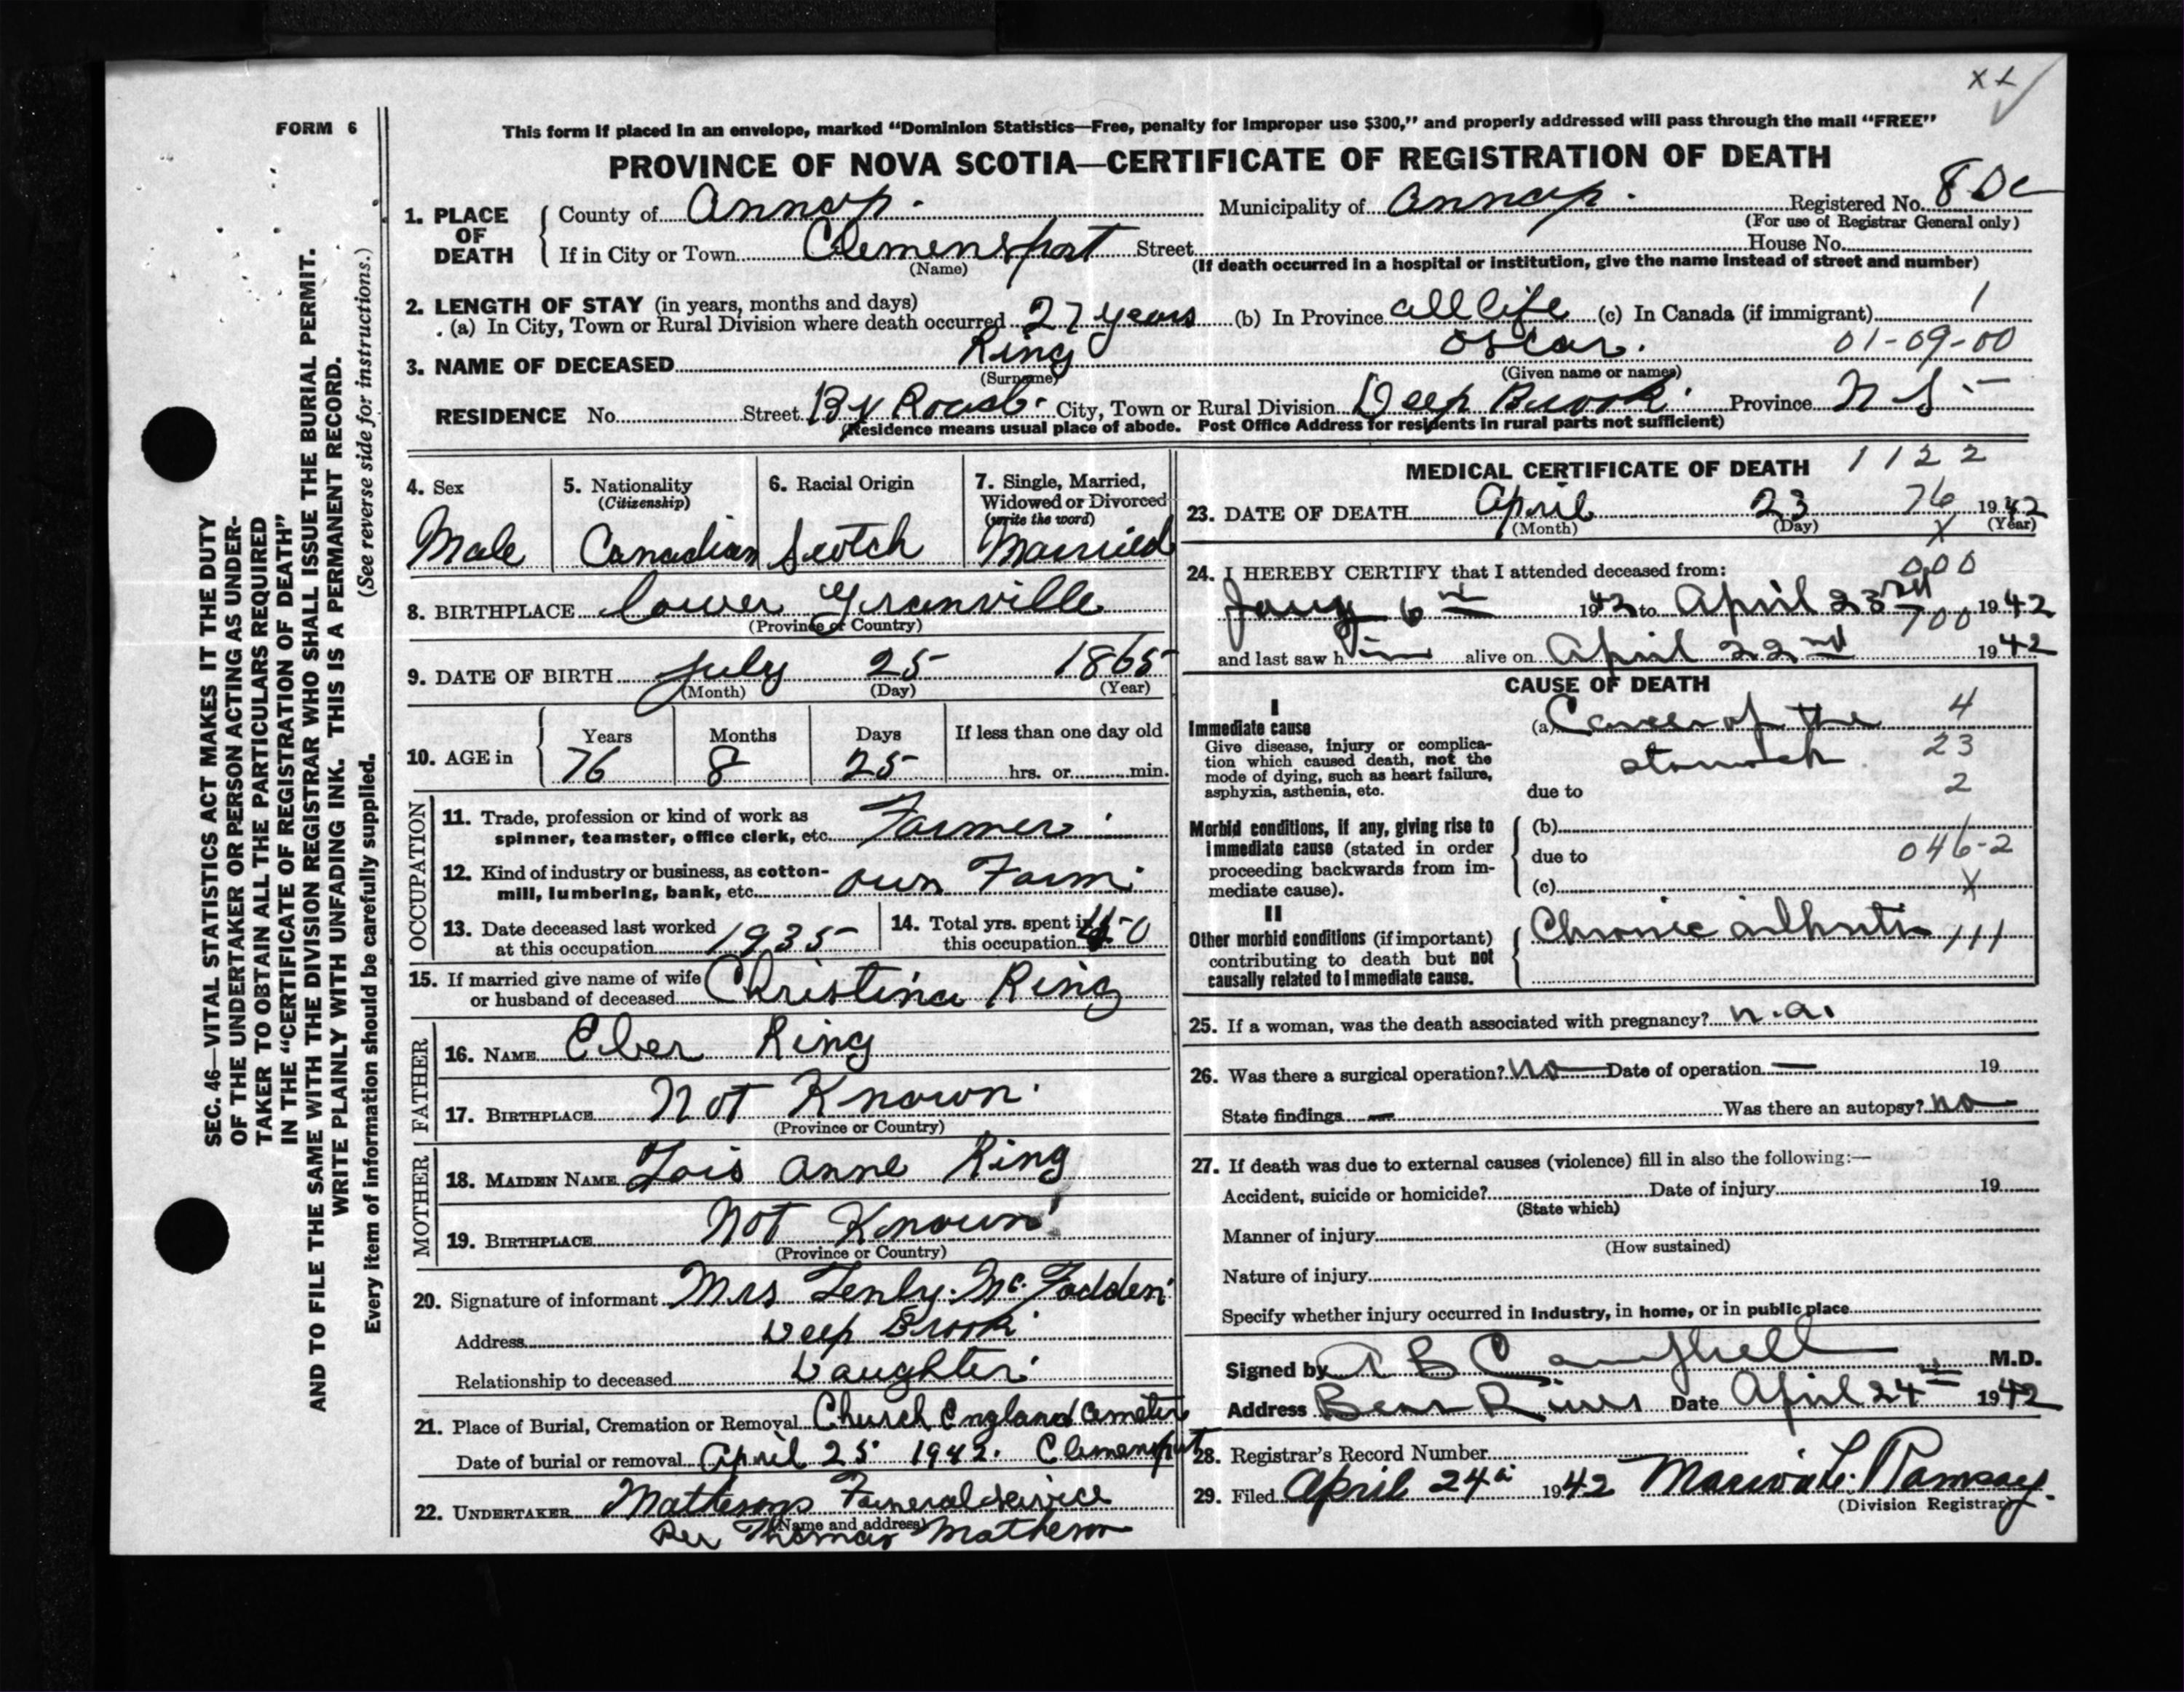 X L
FORM 6
This form if placed in an envelope, marked “Dominion Statistics—Free, penalty for improper use $300,” and properly addressed will pass through the mail “FREE”
PROVINCE OF NOVA SCOTIA—CERTIFICATE OF REGISTRATION OF DEATH
1. PLACE OF DEATH
County of Annap. Municipality of Annap. Registered No. 8
(For use of Registrar General only)
If in City or Town Clemensport Street House No.
(Name) (If death occurred in a hospital or institution, give the name instead of street and number)
2. LENGTH OF STAY (in years, months and days)
(a) In City, Town or Rural Division where death occurred 27 years (b) In Province all life (c) In Canada (if immigrant) 1
3. NAME OF DECEASED Ring Oscar. 01-09-00
(Surname) (Given name or names)
RESIDENCE No. Street By Road. City, Town or Rural Division Deep Brook. Province N S
(Residence means usual place of abode. Post Office Address for residents in rural parts not sufficient)
4. Sex
Male
5. Nationality
(Citizenship)
Canadian
6. Racial Origin
Scotch
7. Single, Married,
Widowed or Divorced
(write the word)
Married
8. BIRTHPLACE Lower Granville
(Province or Country)
9. DATE OF BIRTH July 25 1865
(Month) (Day) (Year)
10. AGE in
Years Months Days If less than one day old
76 8 25 hrs. or min.
OCCUPATION
11. Trade, profession or kind of work as
spinner, teamster, office clerk, etc. Farmer
12. Kind of industry or business, as cotton-
mill, lumbering, bank, etc. own Farm
13. Date deceased last worked
at this occupation 1935
14. Total yrs. spent in
this occupation 0
15. If married give name of wife
or husband of deceased Christina Ring
FATHER
16. NAME Eber Ring
17. BIRTHPLACE Not Known
(Province or Country)
MOTHER
18. MAIDEN NAME Lois Anne Ring
19. BIRTHPLACE Not Known
(Province or Country)
20. Signature of informant Mrs McFadden
Address Deep Brook
Relationship to deceased Daughter
21. Place of Burial, Cremation or Removal Church England
Date of burial or removal April 25 1942. Clemensport
22. UNDERTAKER Mathesons Funeral Service
(Name and address)
Per Thomas Matheson
MEDICAL CERTIFICATE OF DEATH 1122
23. DATE OF DEATH April 23 76 1942
(Month) (Day) X (Year)
24. I HEREBY CERTIFY that I attended deceased from: 000
6th 1942 to April 23rd 1942
700
and last saw him alive on April 22nd 1942
CAUSE OF DEATH
I
Immediate cause
Give disease, injury or complica-
tion which caused death, not the
mode of dying, such as heart failure,
asphyxia, asthenia, etc.
(a) Cancer of the 4
stomach 23
due to 2
Morbid conditions, if any, giving rise to
immediate cause (stated in order
proceeding backwards from im-
mediate cause).
(b)
due to 046-2
(c) X
II
Other morbid conditions (if important)
contributing to death but not
causally related to immediate cause.
Chronic arthritis 111
25. If a woman, was the death associated with pregnancy? n.a.
26. Was there a surgical operation? no Date of operation — 19
State findings — Was there an autopsy? no
27. If death was due to external causes (violence) fill in also the following:—
Accident, suicide or homicide? Date of injury 19
(State which)
Manner of injury
(How sustained)
Nature of injury
Specify whether injury occurred in industry, in home, or in public place
Signed by A B Campbell M.D.
Address Bear River Date April 24th 1942
28. Registrar's Record Number
29. Filed April 24th 1942 L. Ramsay.
(Division Registrar)
SEC. 46—VITAL STATISTICS ACT MAKES IT THE DUTY
OF THE UNDERTAKER OR PERSON ACTING AS UNDER-
TAKER TO OBTAIN ALL THE PARTICULARS REQUIRED
IN THE “CERTIFICATE OF REGISTRATION OF DEATH”
AND TO FILE THE SAME WITH THE DIVISION REGISTRAR WHO SHALL ISSUE THE BURIAL PERMIT.
WRITE PLAINLY WITH UNFADING INK. THIS IS A PERMANENT RECORD.
Every item of information should be carefully supplied. (See reverse side for instructions.)